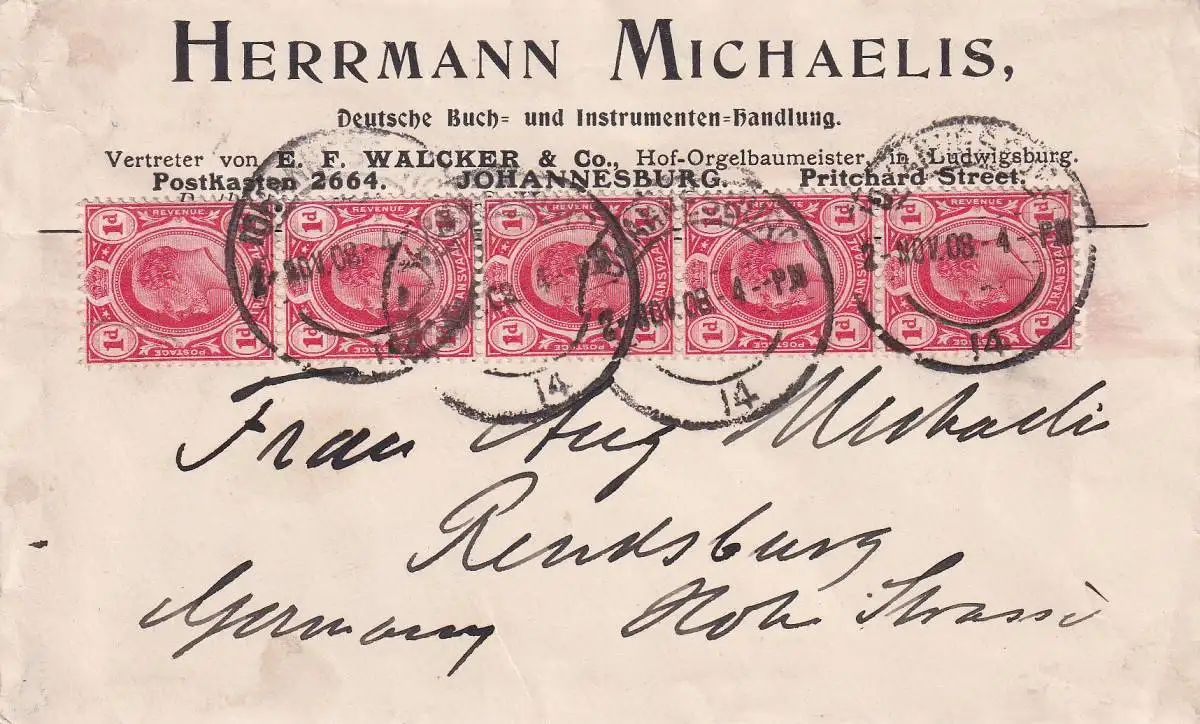 HERRMANN MICHAELIS,
Deutsche Buch- und Instrumenten-Handlung.
Vertreter von E. F. WALCKER & Co., Hof-Orgelbaumeister, in Ludwigsburg.
Postkasten 2664. JOHANNESBURG. Pritchard Street.
REVENUE REVENUE REVENUE REVENUE REVENUE
1d 1d 1d 1d 1d 1d 1d 1d 1d 1d
TRANSVAAL TRANSVAAL TRANSVAAL TRANSVAAL
2-NOV.08 4-PM 2-NOV.08-4-PM 2-NOV.08-4-PM
1d 1d 1d 1d 1d 1d 1d 1d
POSTAGE POSTAGE POSTAGE POSTAGE POSTAGE
14 14 14
Frau Aug Michaelis
Rendsburg
Germany Hohe Strasse